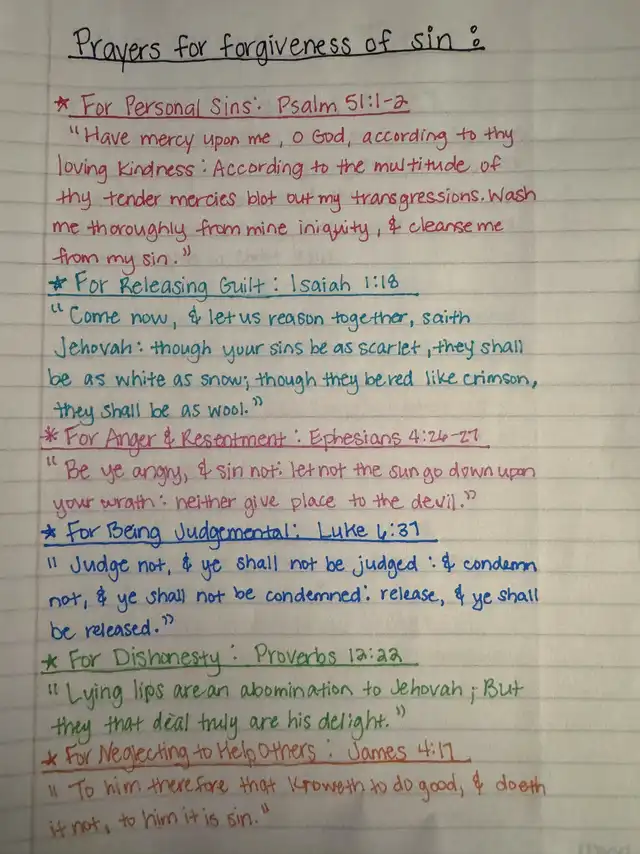 Prayers for forgiveness of sin :
* For Personal Sins: Psalm 51:1-2
"Have mercy upon me, O God, according to thy
loving kindness: According to the multitude of
thy tender mercies blot out my transgressions. Wash
me thoroughly from mine iniquity, & cleanse me
from my sin."
* For Releasing Guilt: Isaiah 1:18
"Come now, & let us reason together, saith
Jehovah: though your sins be as scarlet, they shall
be as white as snow; though they be red like crimson,
they shall be as wool."
* For Anger & Resentment: Ephesians 4:26-27
"Be ye angry, & sin not: let not the sun go down upon
your wrath: neither give place to the devil."
* For Being Judgemental: Luke 6:37
"Judge not, & ye shall not be judged: & condemn
not, & ye shall not be condemned: release, & ye shall
be released."
* For Dishonesty: Proverbs 12:22
"Lying lips are an abomination to Jehovah; But
they that deal truly are his delight."
* For Neglecting to Help Others: James 4:17
"To him therefore that knoweth to do good, & doeth
it not, to him it is sin."